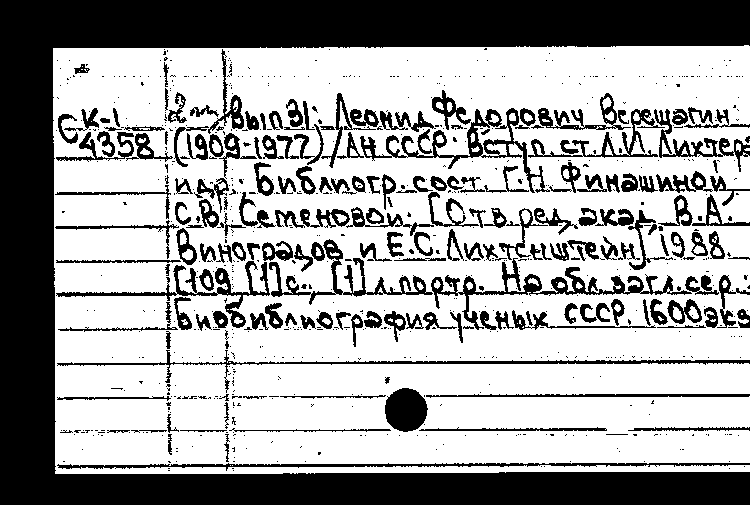 Вып 31: Леонид Федорович Верещагин
СК-1 4358 (1909-1977) / АН СССР; Вступ. ст. Л.И. Лихтера
и др.; Библиогр. сост. Г.Н. Финашиной,
С.В. Семеновой; [Отв. ред. акад. В.А.
Виноградов и Е.С. Лихтенштейн]. 1988.
109 [1] с., [1] л. портр. На обл. загл. сер.:
Биобиблиография ученых СССР. 1600 экз